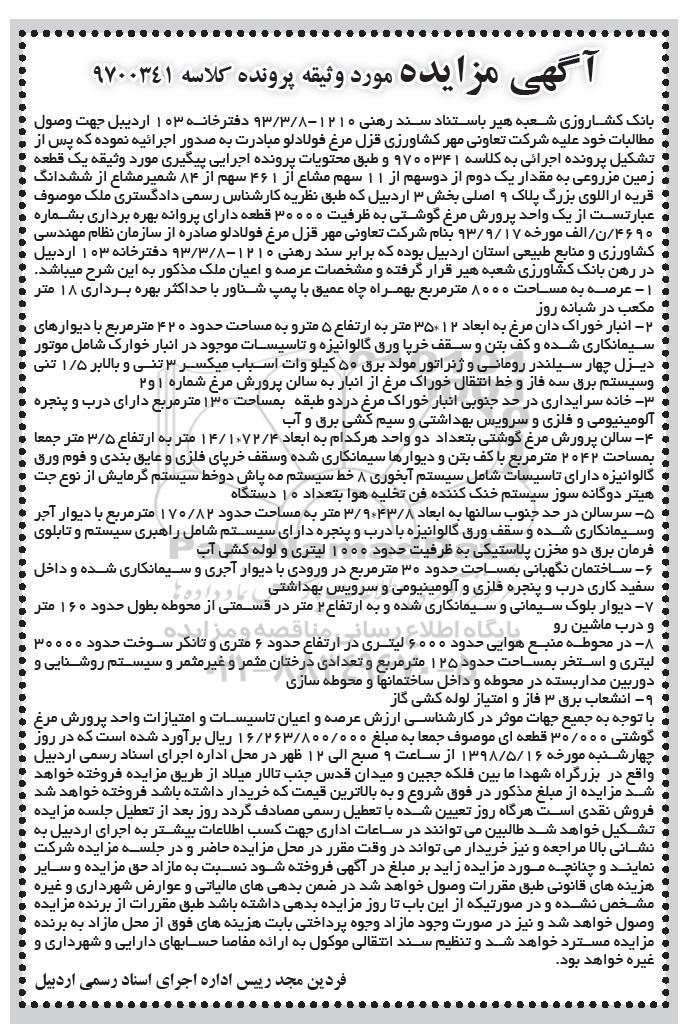 آگهی مزایده مورد وثیقه پرونده کلاسه ۹۷۰۰۳۴۱
بانک کشاروزی شعبه هیر باستناد سند رهنی ۱۲۱۰-۹۳/۳/۸ دفترخانه ۱۰۳ اردیبل جهت وصول
مطالبات خود علیه شرکت تعاونی مهر کشاورزی قزل مرغ فولادلو مبادرت به صدور اجرائیه نموده که پس از
تشکیل پرونده اجرائی به کلاسه ۹۷۰۰۳۴۱ و طبق محتویات پرونده اجرایی پیگیری مورد وثیقه یک قطعه
زمین مزروعی به مقدار یک دوم از دوسهم از ۱۱ سهم مشاع از ۴۶۱ سهم از ۸۴ شمیرمشاع از ششدانگ
قریه اراللوی بزرگ پلاک ۹ اصلی بخش ۳ اردبیل که طبق نظریه کارشناس رسمی دادگستری ملک موصوف
عبارتست از یک واحد پرورش مرغ گوشتی به ظرفیت ۳۰۰۰۰ قطعه دارای پروانه بهره برداری بشماره
۴۶۹۰/ن/الف مورخه ۹۳/۹/۱۷ بنام شرکت تعاونی مهر قزل مرغ فولادلو صادره از سازمان نظام مهندسی
کشاورزی و منابع طبیعی استان اردبیل بوده که برابر سند رهنی ۱۲۱۰-۹۳/۳/۸ دفترخانه ۱۰۳ اردبیل
در رهن بانک کشاورزی شعبه هیر قرار گرفته و مشخصات عرصه و اعیان ملک مذکور به این شرح میباشد.
۱- عرصه به مساحت ۸۰۰۰ مترمربع بهمراه چاه عمیق با پمپ شناور با حداکثر بهره برداری ۱۸ متر
مکعب در شبانه روز
۲- انبار خوراک دان مرغ به ابعاد ۱۲*۳۵ متر به ارتفاع ۵ مترو به مساحت حدود ۴۲۰ مترمربع با دیوارهای
سیمانکاری شده و کف بتن و سقف خرپا ورق گالوانیزه و تاسیسات موجود در انبار خوارک شامل موتور
دیزل چهار سیلندر رومانی و ژنراتور مولد برق ۵۰ کیلو وات اسباب میکسر ۳ تنی و بالابر ۱/۵ تنی
وسیستم برق سه فاز و خط انتقال خوراک مرغ از انبار به سالن پرورش مرغ شماره ۱و۲
۳- خانه سرایداری در حد جنوبی انبار خوراک مرغ دردو طبقه بمساحت ۱۳۰مترمربع دارای درب و پنجره
آلومینیومی و فلزی و سرویس بهداشتی و سیم کشی برق و آب
۴- سالن پرورش مرغ گوشتی بتعداد دو واحد هرکدام به ابعاد ۷۲/۴*۱۴/۱ متر به ارتفاع ۳/۵ متر جمعا
بمساحت ۲۰۴۲ مترمربع با کف بتن و دیوارها سیمانکاری شده وسقف خرپای فلزی و عایق بندی و فوم ورق
گالوانیزه دارای تاسیسات شامل سیستم آبخوری ۸ خط سیستم مه پاش دوخط سیستم گرمایش از نوع جت
هیتر دوگانه سوز سیستم خنک کننده فن تخلیه هوا بتعداد ۱۰ دستگاه
۵- سرسالن در حد جنوب سالنها به ابعاد ۴۳/۸*۳/۹ متر به مساحت حدود ۱۷۰/۸۲ مترمربع با دیوار آجر
وسیمانکاری شده و سقف ورق گالوانیزه با درب و پنجره دارای سیستم شامل راهبری سیستم و تابلوی
فرمان برق دو مخزن پلاستیکی به ظرفیت حدود ۱۰۰۰ لیتری و لوله کشی آب
۶- ساختمان نگهبانی بمساحت حدود ۳۰ مترمربع در ورودی با دیوار آجری و سیمانکاری شده و داخل
سفید کاری درب و پنجره فلزی و آلومینیومی و سرویس بهداشتی
۷- دیوار بلوک سیمانی و سیمانکاری شده و به ارتفاع۲ متر در قسمتی از محوطه بطول حدود ۱۶۰ متر
و درب ماشین رو
۸- در محوطه منبع هوایی حدود ۶۰۰۰ لیتری در ارتفاع حدود ۶ متری و تانکر سوخت حدود ۳۰۰۰۰
لیتری و استخر بمساحت حدود ۱۲۵ مترمربع و تعدادی درختان مثمر و غیرمثمر و سیستم روشنایی و
دوربین مداربسته در محوطه و داخل ساختمانها و محوطه سازی
۹- انشعاب برق ۳ فاز و امتیاز لوله کشی گاز
با توجه به جمیع جهات موثر در کارشناسی ارزش عرصه و اعیان تاسیسات و امتیازات واحد پرورش مرغ
گوشتی ۳۰/۰۰۰ قطعه ای موصوف جمعا به مبلغ ۱۶/۲۶۳/۸۰۰/۰۰۰ ریال برآورد شده است که در روز
چهارشنبه مورخه ۱۳۹۸/۵/۱۶ از ساعت ۹ صبح الی ۱۲ ظهر در محل اداره اجرای اسناد رسمی اردبیل
واقع در بزرگراه شهدا ما بین فلکه ججین و میدان قدس جنب تالار میلاد از طریق مزایده فروخته خواهد
شد مزایده از مبلغ مذکور در فوق شروع و به بالاترین قیمت که خریدار داشته باشد فروخته خواهد شد
فروش نقدی است هرگاه روز تعیین شده با تعطیل رسمی مصادف گردد روز بعد از تعطیل جلسه مزایده
تشکیل خواهد شد طالبین می توانند در ساعات اداری جهت کسب اطلاعات بیشتر به اجرای اردبیل به
نشانی بالا مراجعه و نیز خریدار می تواند در وقت مقرر در محل مزایده حاضر و در جلسه مزایده شرکت
نمایند و چنانچه مورد مزایده زاید بر مبلغ در آگهی فروخته شود نسبت به مازاد حق مزایده و سایر
هزینه های قانونی طبق مقررات وصول خواهد شد در ضمن بدهی های مالیاتی و عوارض شهرداری و غیره
مشخص نشده و در صورتیکه از این باب تا روز مزایده بدهی داشته باشد طبق مقررات از برنده مزایده
وصول خواهد شد و نیز در صورت وجود مازاد وجوه پرداختی بابت هزینه های فوق از محل مازاد به برنده
مزایده مسترد خواهد شد و تنظیم سند انتقالی موکول به ارائه مفاصا حسابهای دارایی و شهرداری و
غیره خواهد بود.
فردین مجد رییس اداره اجرای اسناد رسمی اردبیل
پایگاه اطلاع رسانی مناقصه و مزایده